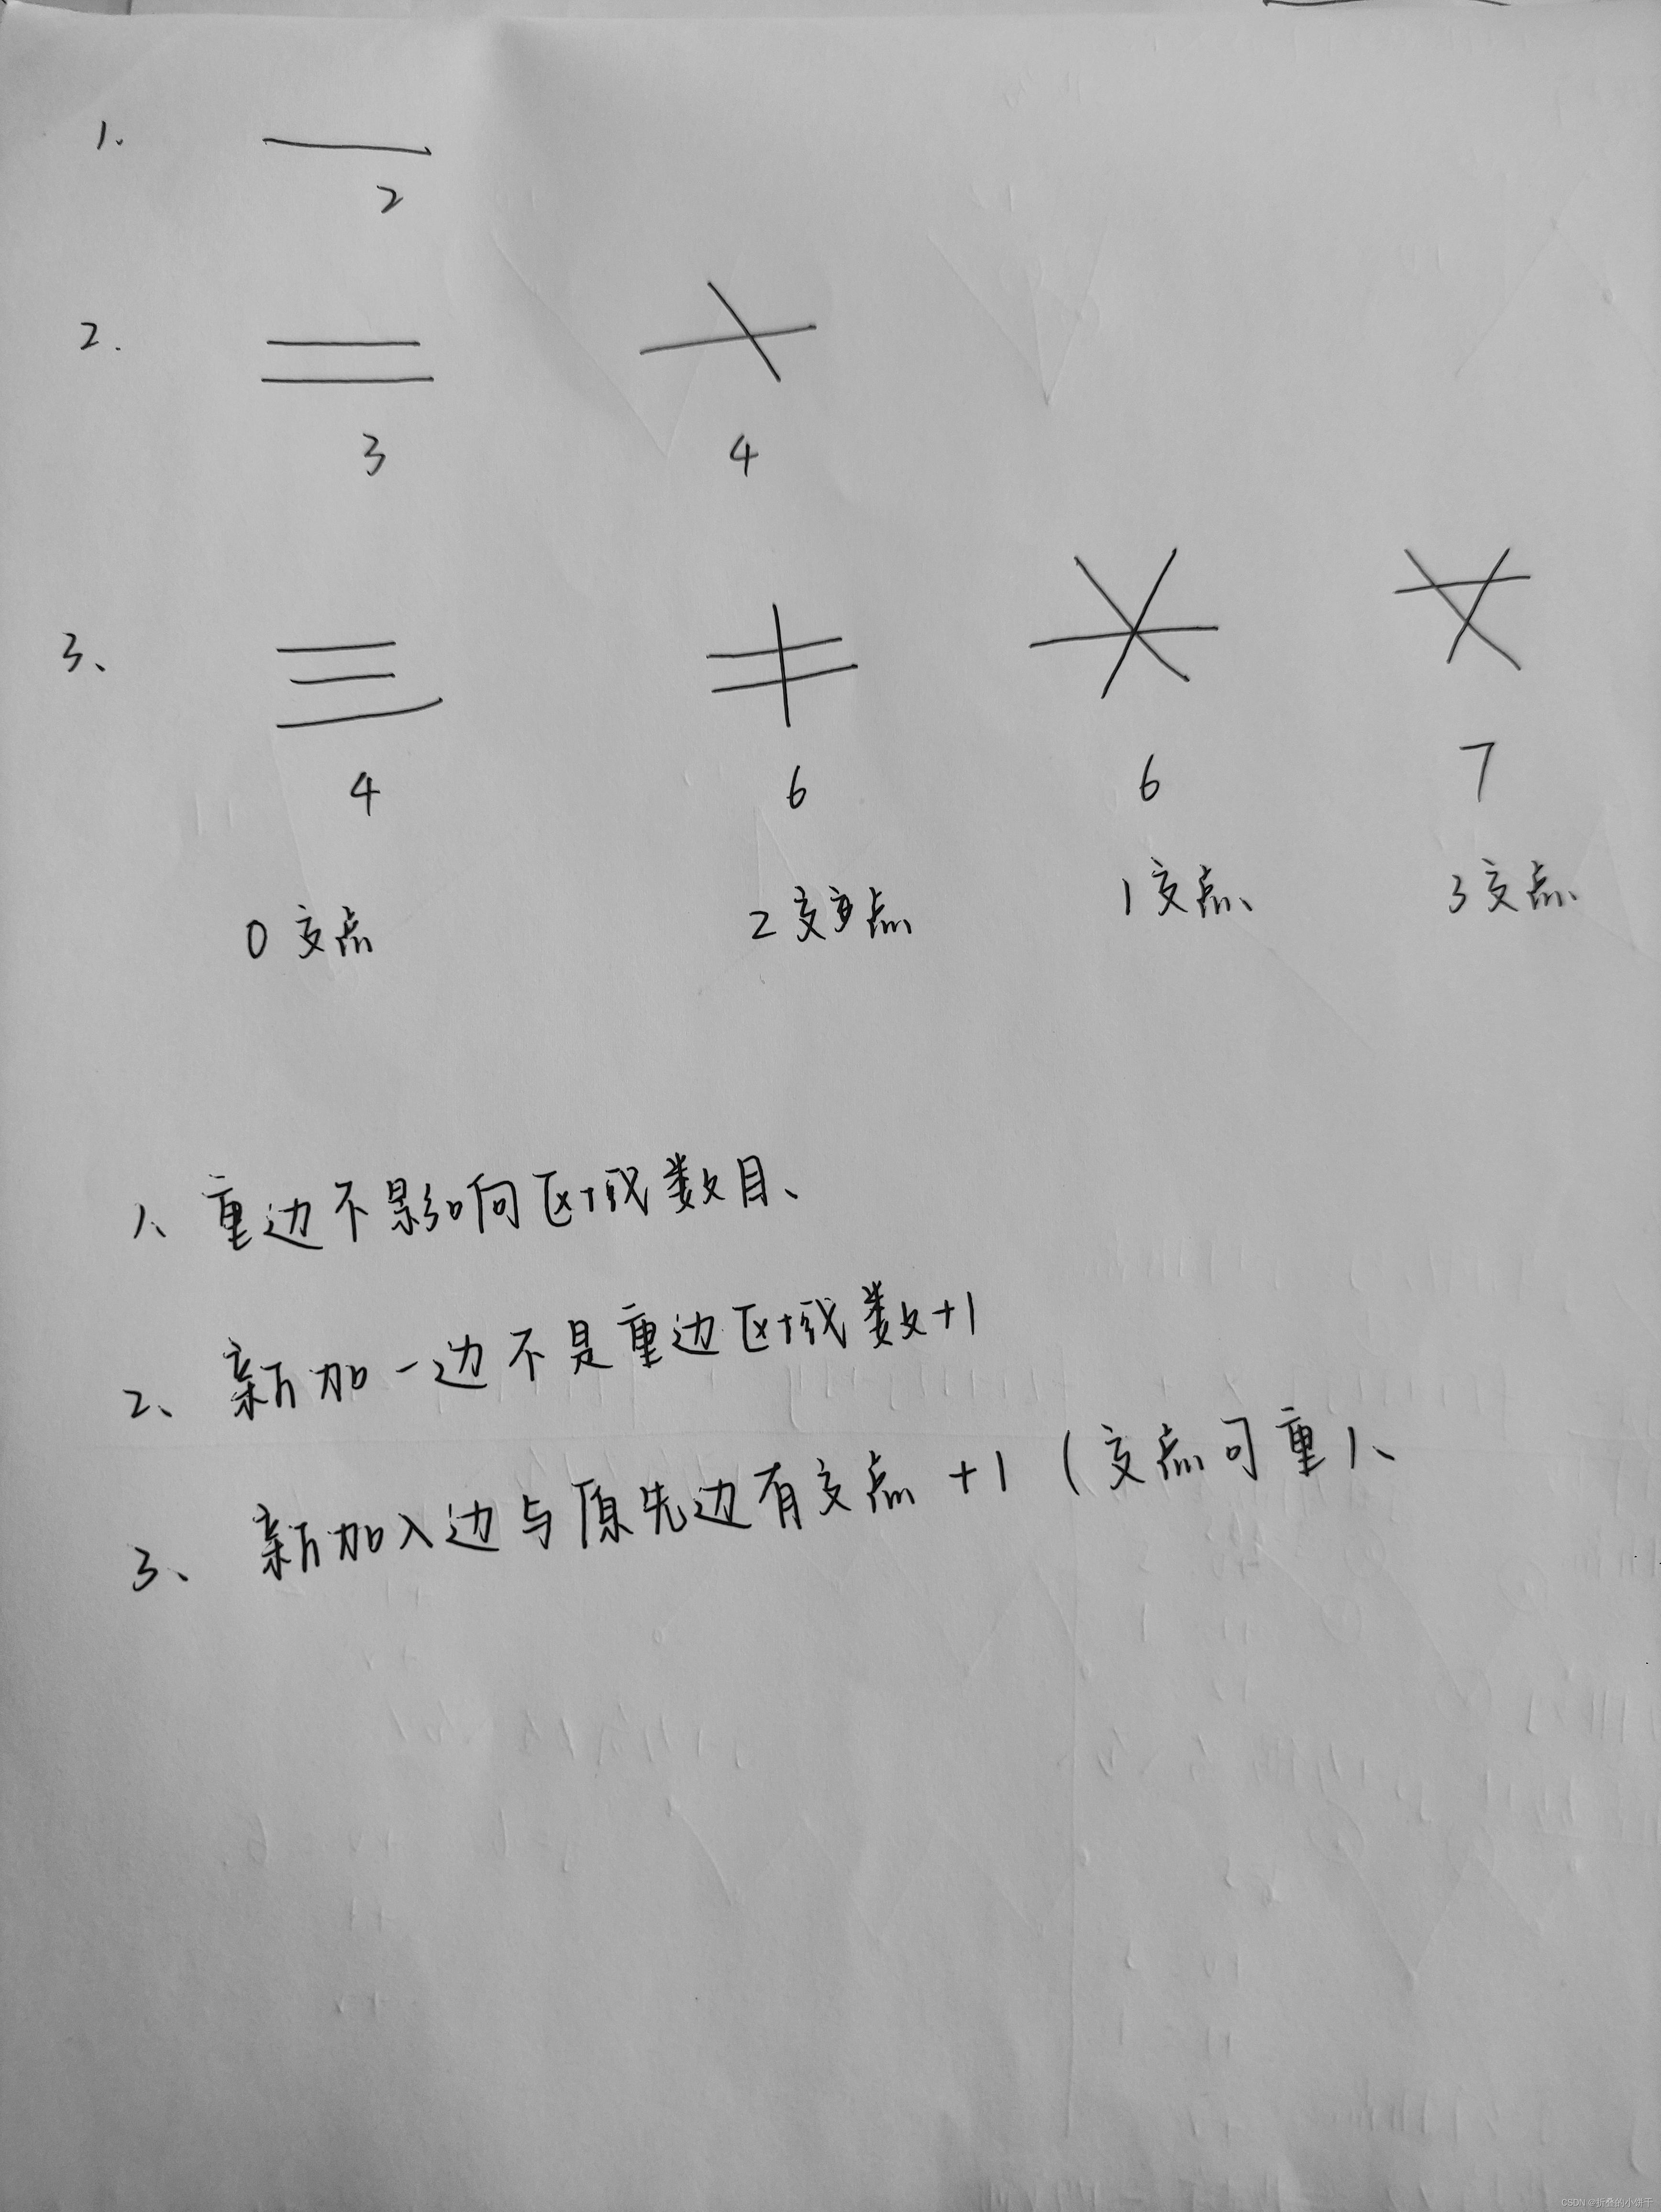 1.
2
2.
3 4
3、
4 6 6 7
0交点 2交点 1交点、 3交点、
1、重边不影响区域数目、
2、新加一边不是重边区域数+1
3、新加入边与原先边有交点+1（交点可重）、
CSDN @折叠的小饼干